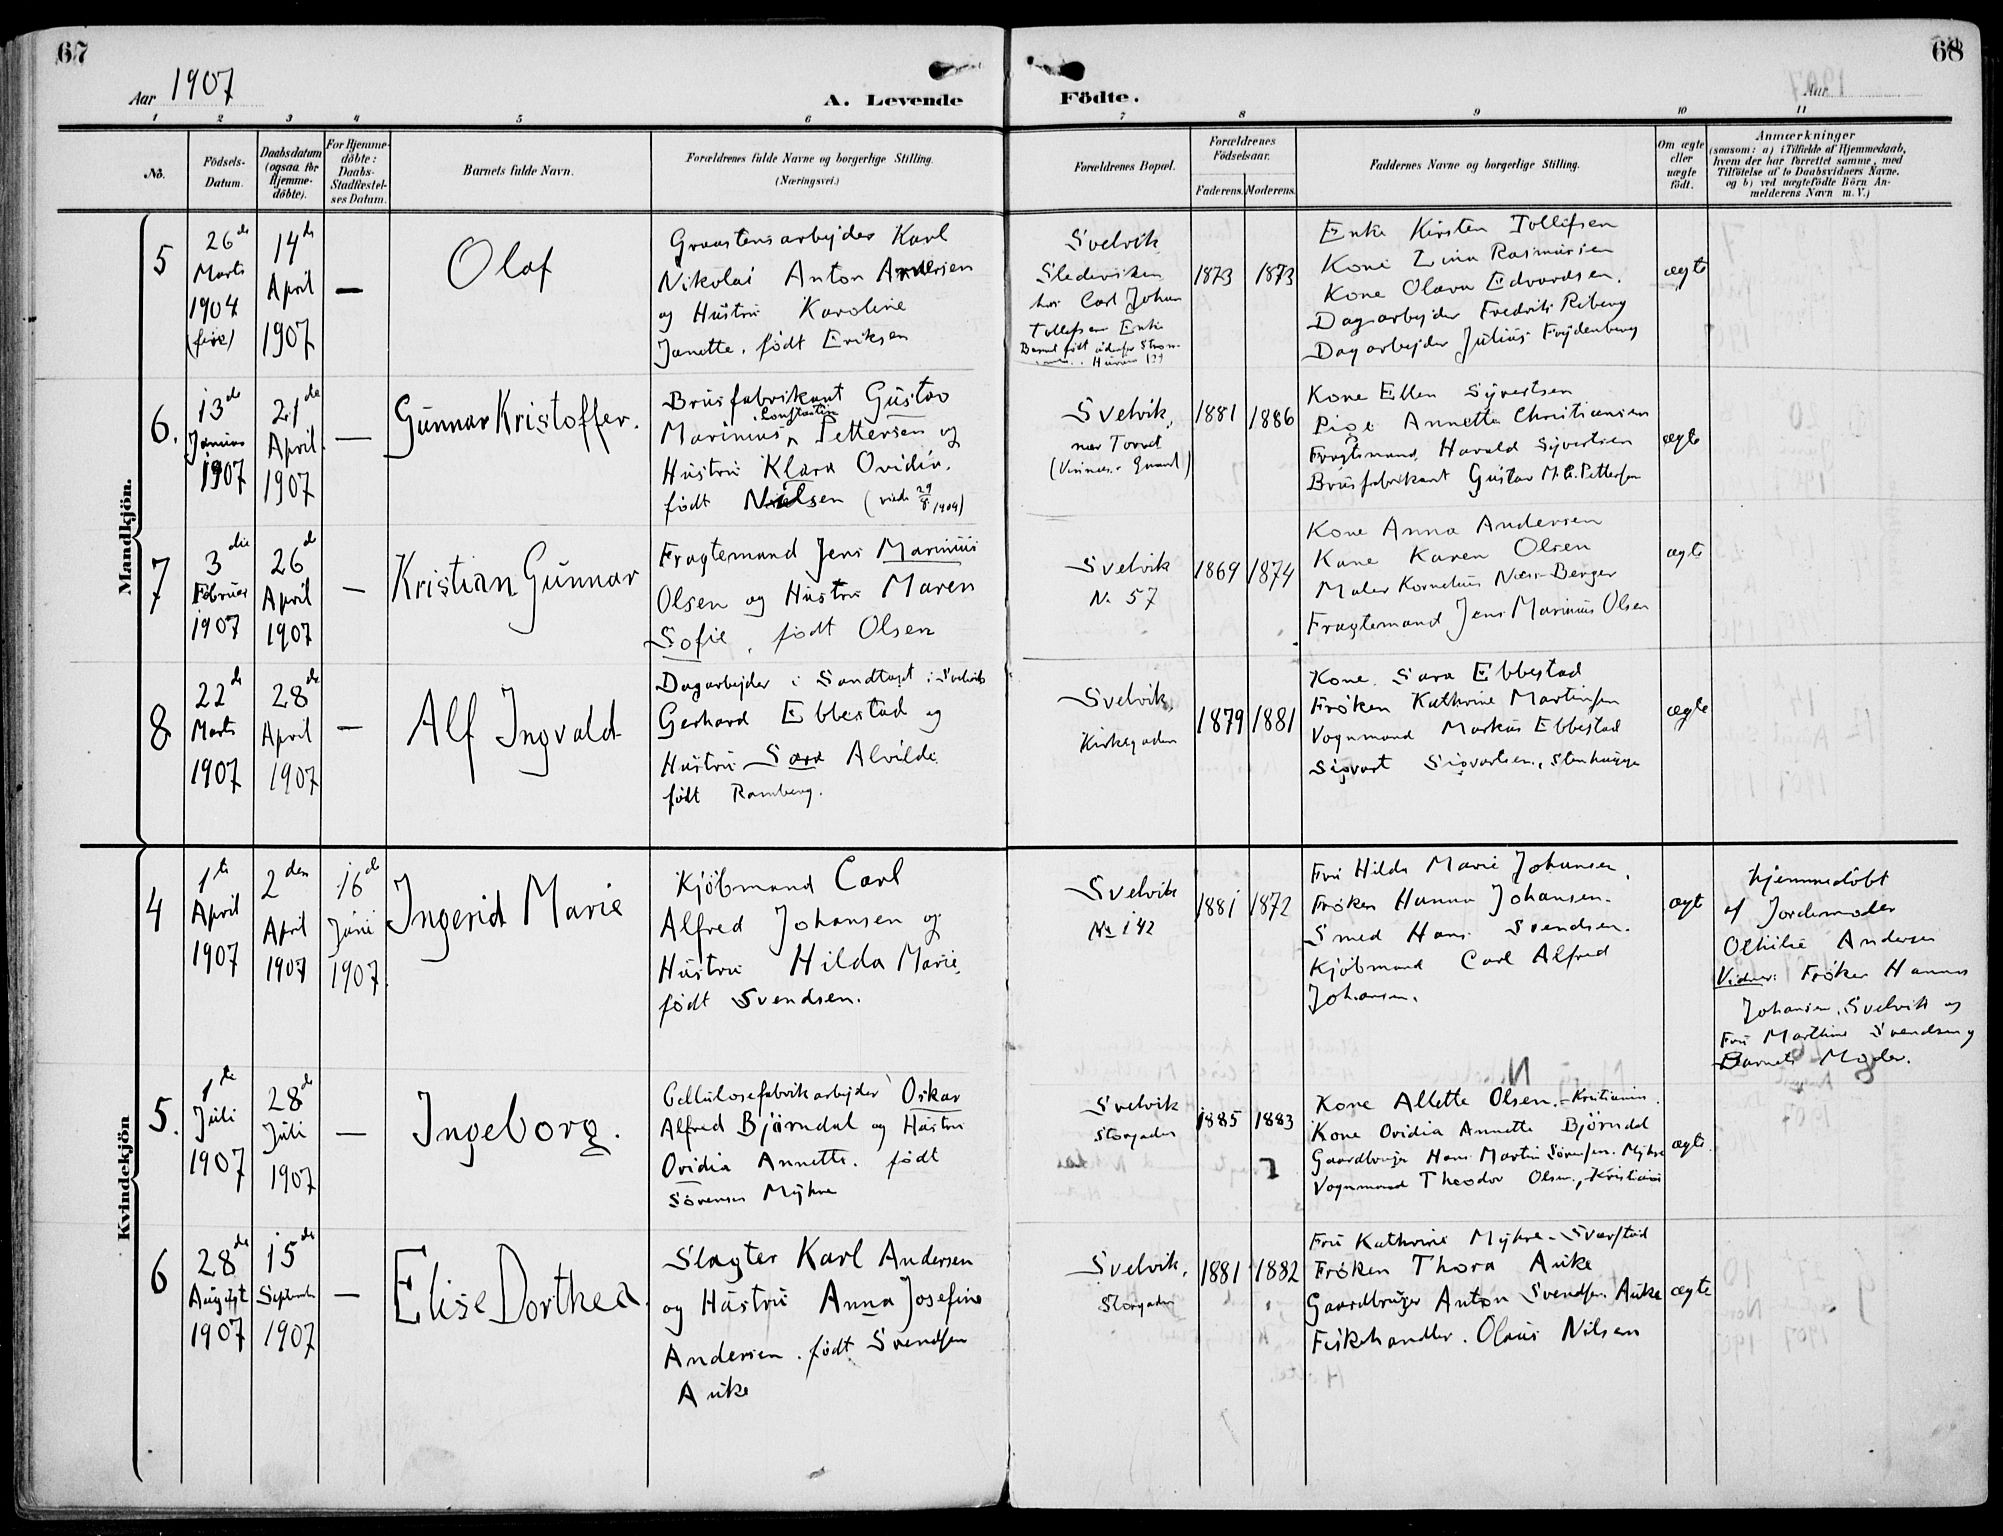 67
Aar 1907
A. Levende
1 2 3 4 5 6
No.
Födsels-Datum.
Daabsdatum (ogsaa for Hjemme-döbte).
For Hjemme-döbte: Daabs-Stadfæstel-ses Datum.
Barnets fulde Navn.
Forældrenes fulde Navne og borgerlige Stilling.
(Næringsvei.)
Mandkjön.
5
26de
Marts
1904
(fire)
14de
April
1907
—
Olaf
Graastensarbejder Karl
Nikolai Anton Andersen
og Hustru Karoline
Janette, født Eriksen
6.
13de
Januar
1907
21de
April
1907
—
Gunnar Kristoffer.
Brusfabrikant Gustav
Constantin
Marinius Pettersen og
Hustru Klara Ovidia,
født Nielsen (viede 29/8 1904)
7
3die
Februar
1907
26de
April
1907
—
Kristian Gunnar
Fragtemand Jens Marinius
Olsen og Hustru Maren
Sofie, født Olsen
8
22de
Marts
1907
28de
April
1907
—
Alf Ingvald
Dagarbejder i Sandtaget i Svelvik
Gerhard Ebbestad og
Hustru Sara Alvilde
født Ramberg.
Kvindekjön
4
1ste
April
1907
2den
April
1907
16de
Juni
1907
Ingerid Marie
Kjöbmand Carl
Alfred Johansen og
Hustru Hilda Marie,
født Svendsen.
5.
1ste
Juli
1907
28de
Juli
1907
—
Ingeborg.
Cellulosefabrikarbejder Oskar
Alfred Björndal og Hustru
Ovidia Annette, født
Sörensen Myhre
6
28de
August
1907
15de
September
1907
—
Elise Dorthea
Slagter Karl Andersen
og Hustru Anna Josefine
Andersen, født Svendsen
Auke
68
Födte.
7 8 9 10 11
Forældrenes Bopæl.
Forældrenes Födselsaar.
Faderens. Moderens.
Faddernes Navne og borgerlige Stilling.
Om ægte eller uægte födt.
Anmærkninger
(saasom: a) i Tilfælde af Hjemmedaab,
hvem der har forrettet samme, med
Tilföielse af to Daabsvidners Navne,
og b) ved uægtefödte Börn An-
melderens Navn m. V.)
Svelvik
hos Carl Johan
Tollefsens Enke
1873
1873
Enke Kirsten Tollefsen
Kone Lina Rasmussen
Kone Olava Edvardsen.
Dagarbejder Fredrik Reberg
Dagarbejder Julius Frydenberg
ægte
Svelvik,
nær Torvet
1881
1886
Kone Ellen Syvertsen
Pige Annette Christiansen
Fragtemand Harald Syvertsen
Brusfabrikant Gustav M. C. Pettersen
ægte
Svelvik
No 57
1869
1874
Kone Anna Andersen
Kone Karen Olsen
Maler Kornelius Næss-Berger
Fragtemand Jens Marinius Olsen
ægte
Svelvik,
Kirkegaden
1879
1881
Kone Sara Ebbestad
Frøken Kathrine Martinsen
Vognmand Markus Ebbestad
Sigvart Sigvartsen, Stenhugger
ægte
Svelvik
No 142
1881
1872
Fru Hilda Marie Johansen.
Frøken Hanna Johansen.
Smed Hans Svendsen.
Kjöbmand Carl Alfred
Johansen.
ægt
hjemmedöbt
af Jordemoder
Othilie Andersen
Vidner: Frøken Hanna
Johansen, Svelvik og
Fru Marthine Svendsen,
Barnets Moder.
Svelvik
Storgaden
1885
1883
Kone Allette Olsen, Kristiania.
Kone Ovidia Annette Björndal
Gaardbruger Hans Martin Sörensen Myhre
Vognmand Theodor Olsen, Kristiania
ægte.
Svelvik,
Storgaden
1881
1882
Fru Kathrine Myhre-Svarstad
Frøken Thora Auke
Gaardbruger Anton Svendsen Auke
Fiskehandler Olaus Nilsen
ægte